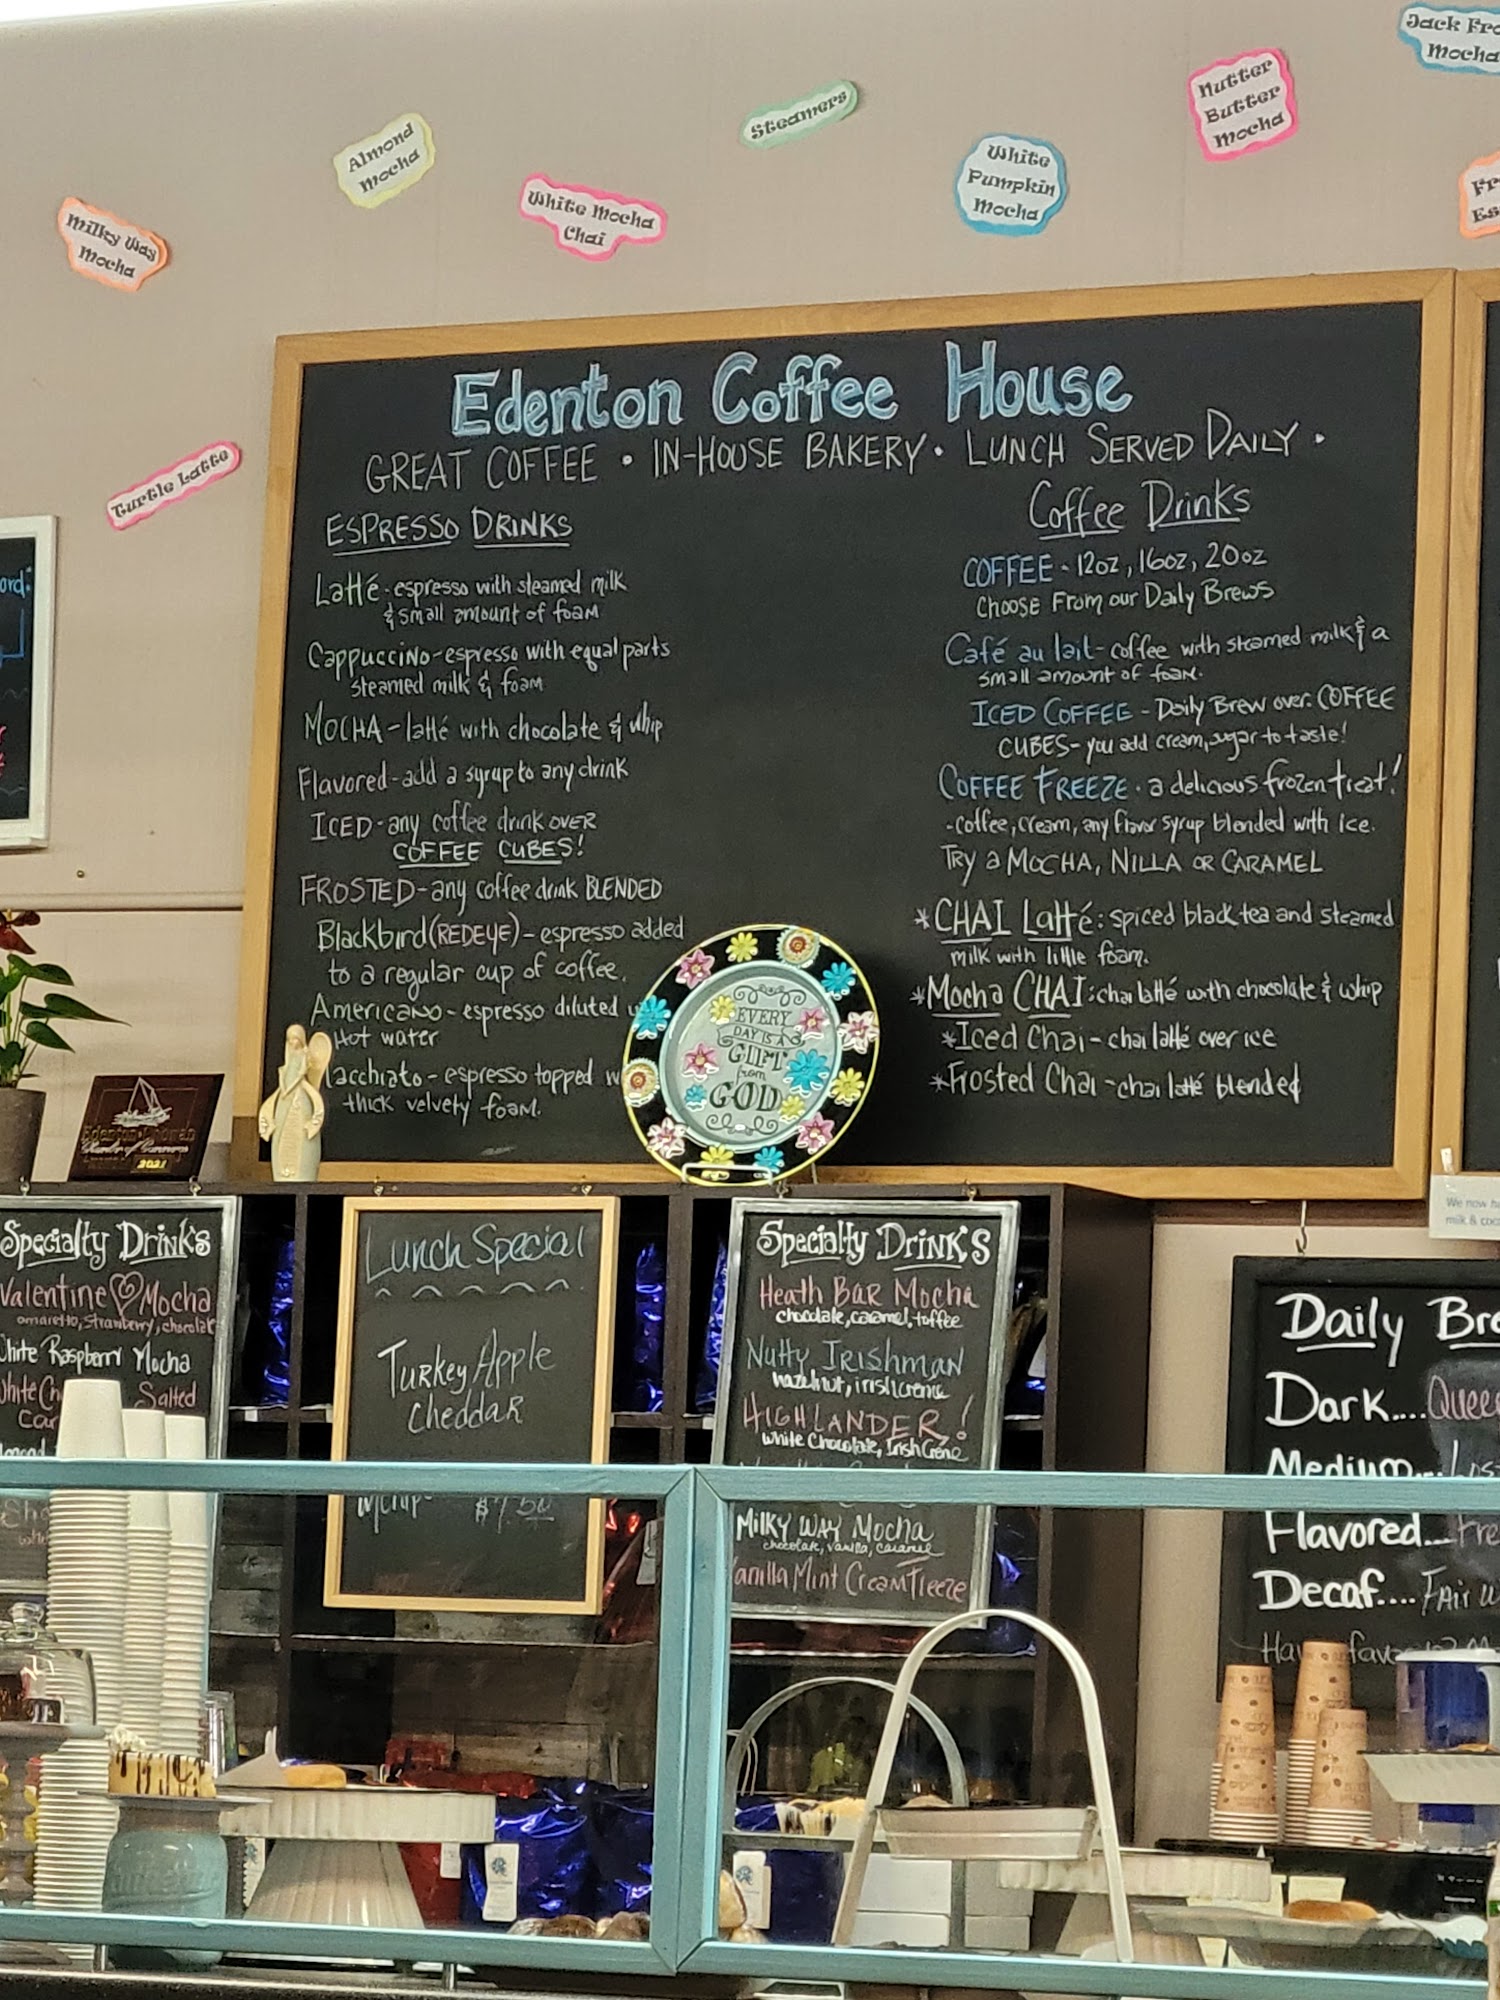 Jack
Mocha
Nutter
Butter
Mocha
Steamers
Almond
Mocha
White
Pumpkin
Mocha
White Mocha
Chai
Milky Way
Mocha
Turtle Latte
Edenton Coffee House
GREAT COFFEE • IN-HOUSE BAKERY • LUNCH SERVED DAILY •
ESPRESSO DRINKS
Latté - espresso with steamed milk
& small amount of foam
Cappuccino - espresso with equal parts
steamed milk & foam
MOCHA - latté with chocolate & whip
Flavored - add a syrup to any drink
ICED - any coffee drink OVER
COFFEE CUBES!
FROSTED - any coffee drink BLENDED
Blackbird (REDEYE) - espresso added
to a regular cup of coffee.
Americano - espresso diluted
Hot water
acchiato - espresso topped
thick velvety foam.
Coffee Drinks
COFFEE - 12oz, 16oz, 20oz
Choose From our Daily Brews
Café au lait - coffee with steamed milk & a
small amount of foam.
ICED COFFEE - Daily Brew over COFFEE
CUBES - you add cream, sugar to taste!
COFFEE FREEZE - a delicious frozen treat!
- coffee, cream, any flavor syrup blended with ice.
TRY a MOCHA, NILLA OR CARAMEL
*CHAI Latté: spiced black tea and steamed
milk with little foam.
*Mocha CHAI: chai latté with chocolate & whip
*Iced Chai - chai latté over ice
*Frosted Chai - chai latté blended
EVERY
DAY IS A
GIFT
from
GOD
2021
Specialty Drink's
Valentine Mocha
amaretto, strawberry, chocolate
White Raspberry Mocha
Salted
Lunch Special
Turkey Apple
Cheddar
$7.50
Specialty Drink's
Heath Bar Mocha
chocolate, caramel, toffee
Nutty Irishman
hazelnut, irish creme
HIGHLANDER!
White Chocolate, Irish Creme
Milky Way Mocha
chocolate, vanilla, caramel
Vanilla Mint Cream Freeze
We now
milk &
Daily
Dark....
Medium....
Flavored....
Decaf....